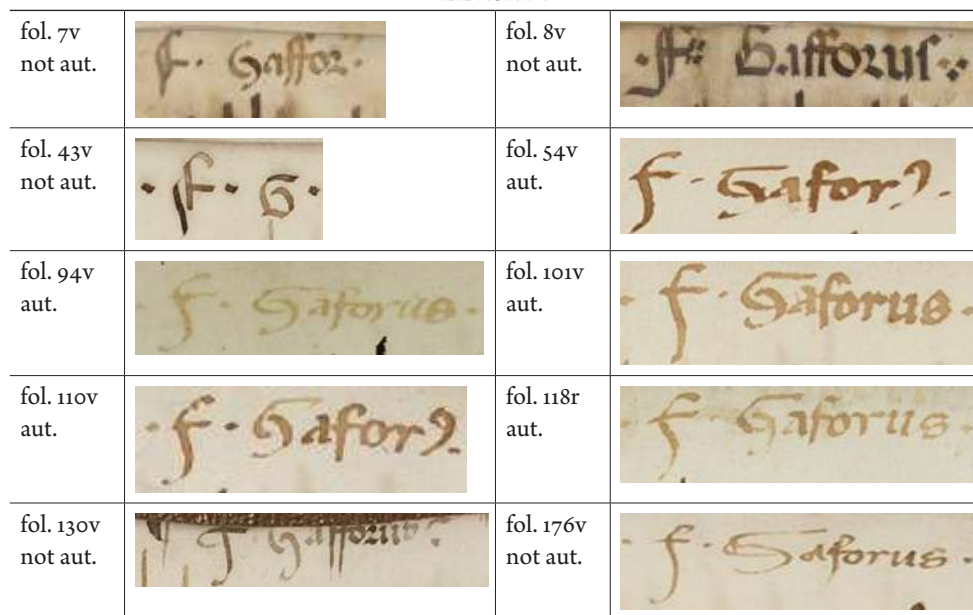 fol. 7v
not aut.
f. Gaffor.
fol. 8v
not aut.
· ff Gafforus
fol. 43v
not aut.
· ff · G ·
fol. 54v
aut.
F · Gaforꝰ.
fol. 94v
aut.
· F · Gaforus ·
fol. 101v
aut.
· F · Gaforus ·
fol. 110v
aut.
· F · Gaforꝰ.
fol. 118r
aut.
· F · Gaforus ·
fol. 130v
not aut.
F · Gafforus
fol. 176v
not aut.
F · Gaforus ·